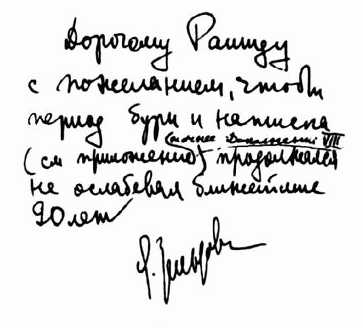 Дорогому Рашиду
с пожеланием, чтобы
период бури и натиска
VIII
(см приложение) продолжался
не ослабевая ближайшие
90 лет